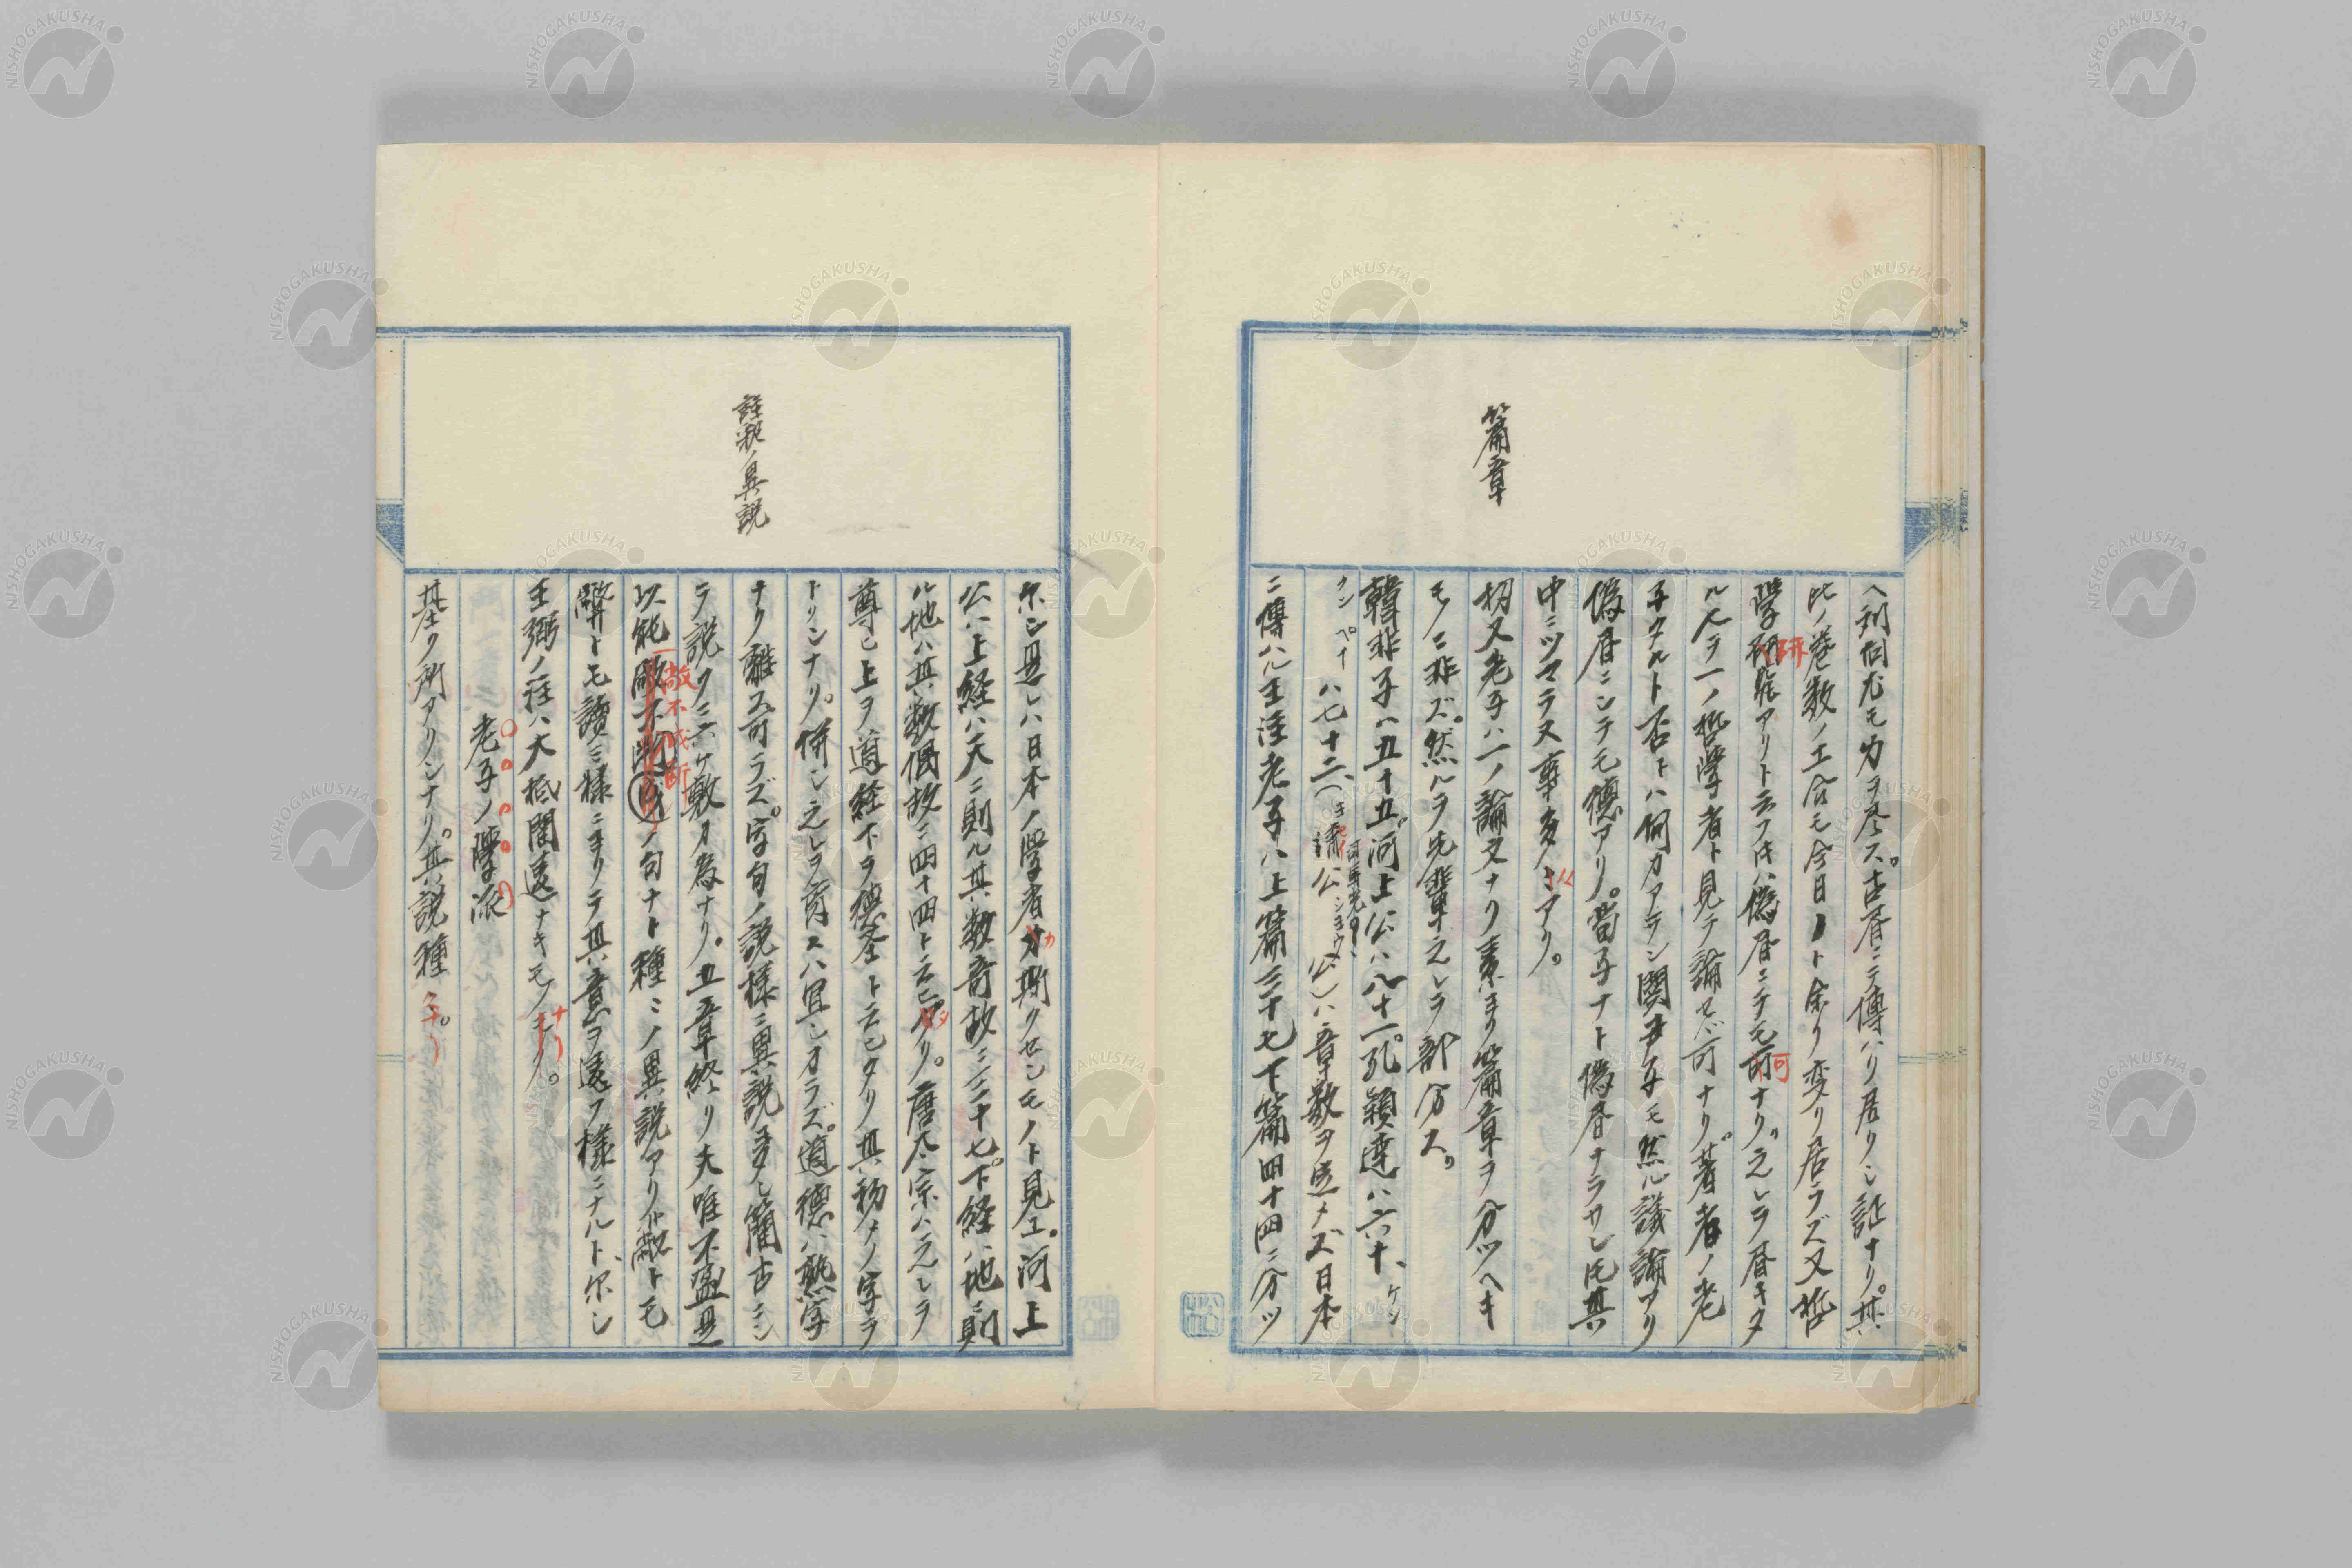 篇章
ヘ列尤モ力ヲ尽ス。古書ニテ傳ハリ居リシ証ナリ。其
此ノ巻数ノ工合モ今日ノト余リ変リ居ラズ又哲
学研究アリト云フハ偽書ニテモ可ナリ。之レヲ書キタ
ル人ヲ一ノ哲学者ト見テ論セバ可ナリ。著者ノ老
子タルト否トハ何カアラン関尹子モ然ル議論アリ
偽書ニシテモ徳アリ。荀子ナト偽書ナラサレ𪜈其
中ニツマラヌ事多クアリ。
扨又老子ハ一ノ論文ナリ素ヨリ篇章ヲ分ツヘキ
モノニ非ズ。然ルヲ先輩之レヲ部分ス。
韓非子ハ五十五。河上公ハ八十一。孔頴達ハ六十、ケン
クンペイハ七十二、ハ章数ヲ定メズ日本
ニ傳ハル王注老子ハ上篇三十七下篇四十四ニ分ツ
註釈ノ異説
尓シ是レハ日本ノ学者カ斯クセシモノト見エ。河上
公ハ上経ハ天ニ則ル其数奇故ニ三十七。下経ハ地ニ則
ル地ハ其数偶故ニ四十四ト云ヒタリ。唐太宗ハ之レヲ
尊ヒ上ヲ道経下ヲ徳経ト云ヒタリ其初メノ字ヲ
トリシナリ。併シ之レヲ育スハ宜シカラズ。道徳ハ熟字
ナリ離ス可ラズ。字句ノ説様ニ異説多シ簡古ニシ
テ説クニ六ケ敷カ為ナリ。五章終リ夫唯不盈是
以能敝不新成ノ句ナト種々ノ異説アリ敝トモ
弊トモ読ミ様ニヨリテ其意ヲ違フ様ニナルト、尓シ
王弼ノ注ハ大抵間違ナキモノナリ。
老子ノ学派
基ク所アリシナリ。其説種々ナリ
NISHOGAKUSHA